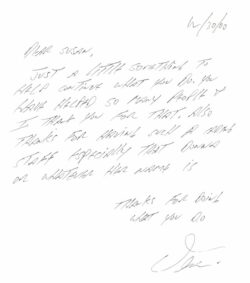 DEAR SUSAN,
JUST A LITTLE SOMETHING TO
HELP CONTINUE WHAT YOU DO. YOU
HAVE HELPED SO MANY PEOPLE &
I THANK YOU FOR THAT. ALSO
THANKS FOR HAVING SUCH A
STAFF ESPECIALLY THAT
OR WHATEVER HER NAME IS
THANKS FOR DOING
WHAT YOU DO